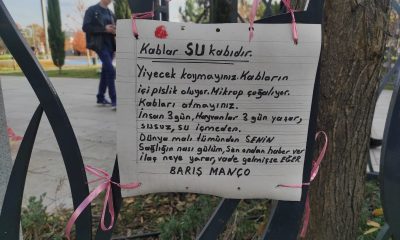 Kablar SU kabıdır.
Yiyecek koymayınız. Kabların
içi pislik oluyor. Mikrop çoğalıyor.
Kabları atmayınız.
İnsan 3 gün, Hayvanlar 3 gün yaşar,
susuz, su içmeden.
Dünya malı tümünden SENİN
Sağlığın nası gülüm, Sen ondan haber ver
ilaç neye yarar, vade gelmişse EĞER
BARIŞ MANÇO